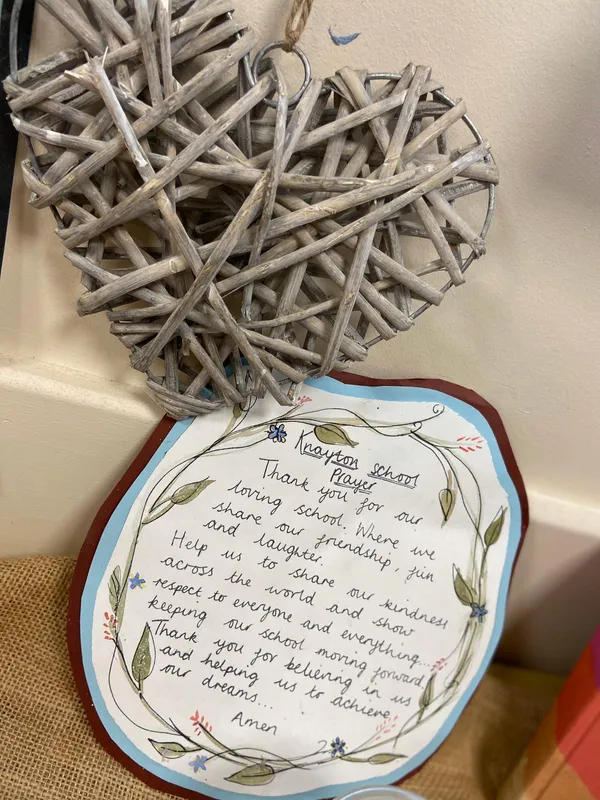 Knayton school
Prayer
Thank you for our
loving school. Where we
share our friendship, fun
and laughter.
Help us to share our kindness
across the world and show
respect to everyone and everything...
keeping our school moving forward
Thank you for believing in us
and helping us to achieve
our dreams...
Amen